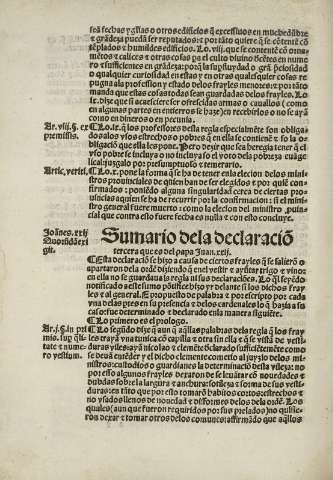 seã fechas y çllas o otros edificios q̃ excessiuos en muchedũbre
y grãdeza puedã ser reputados: e por tãto quiere q̃ se cõtentẽ cõ
tẽplados e humildes edificios. ¶ Lo .viij. que se contentẽ cõ orna-
mẽtos e calices e otras cosas pa el culto diuino decẽtes en nume
ro: suficientes en grandeza: porq̃ la supfluydad o grã
o qualquier curiosidad en estas y en otras qualesquier cosas re-
pugna ala professiõ y estado delos frayles menores: e por tãto
manda que estas cosas todas seã guardadas delos frayles. ¶ Lo
.ix. dize que si acaesciere ser ofrescidas armas o cauallos (como
en algunas partes en entierros se haze) en recebirlos o no se aya
como en dineros o en pecunia.
Ar. viij. §. ex
premissis.
¶ Lo .x. los professores dela regla especialmẽte son obliga-
dos alos y osestrechos o pobres q̃ en ella se contienẽ fo la o-
bligaciõ que ella los pone. Pero dezir que sea heregia tener q̃ el
vso pobre se incluya o no incluya so el voto dela pobreza euãge
lica: juzgalo por presumptuoso e temerario.
Artic. vertici.
¶ Lo .x. pone la forma q̃ se ha de tener enla elecion delos minis
tros prouinciales de quien han de ser elegidos e por quiẽ con-
firmados: poniẽdo alguna singularidad cerca de ciertas pro-
uincias aquien se ha de recurrir por la confirmacion: si el minis
tro general fuere muerto: como la elecion del ministro prouin
cial que contra esto fuere fecha es nulla e con esto concluye.
Joãnes. xxij
Quorũdã exi
git.
Sumario dela declaraciõ
tercera que es del papa Juan .xxij.
¶ Esta declaraciõ se hizo a causa de ciertos frayles q̃ se saliero̊ o
apartaron dela ordẽ diziendo q̃ enel vestir e ayũtar trigo e vino:
en ella no se guardaua la regla ni sus declaraciões. Lo q̃l seyẽdo
notificado a este sumo põtifice hizo yr delante si los dichos fray
les y al general. E proposito de palabra e por escripto por cada
vna delas ptes en su presencia e delos cardenales lo q̃ hazia a su
caso: fue determinado e declarado enla manera siguiẽte.
¶ Lo primero es el prologo.
Ar. j. §. in pri
mis. sup q̃li-
tate em et nu-
nero vestium.
¶ Lo segũdo dize q̃ aun q̃ aq̃llas palabras dela regla q̃ los fray
les trayã vna tunica cõ capilla e otra sin ella e q̃ se vistã de vesti-
duras viles: ayanicolao e clemẽte declarado suficiẽtemẽte como
se deuã entẽder y el dicho clemente cometio al juyzio delos mi-
nistros: custodios o guardianes la determinaciõ desta vileza: no
por esso algunos frayles dexaron de se leuãtar cõ nouedades e
dudas sobre la largura e anchura: sotileza e forma de sus vesti-
duras: en tãto que por esto tomarõ habitos cortos: estrechos e
no vsados llenos de nouedad e diformes delos dela ordẽ. Los
quales (aun que fueron requiridos por sus prelados) no quisie-
ron dexar e tomar otros delos comunes: affirmãdo que aq̃llos